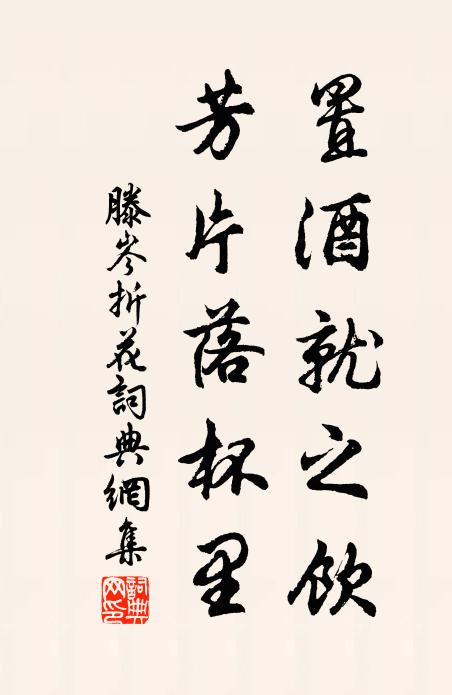 置酒就之飲
芳片落杯里
滕岑折花詞典網集
詞典網印